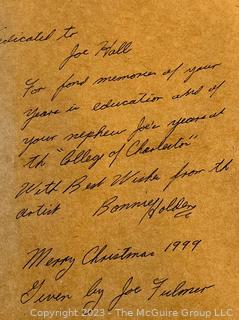 Dedicated to
Joe Hall
For fond memories of your
years in education and of
your nephew Joe's years at
th "College of Charleston"
With Best Wishes from th
artist Bonnie Holden
Merry Christmas 1999
Given by Joe Fulmer
Copyright © 2023 - The McGuire Group LLC